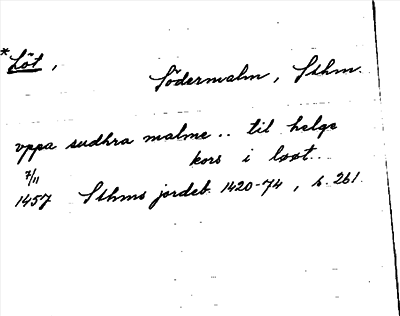 *Löt,
Södermalm, Sthm.
vppa sudhra malme .. til helge
kors i løøt..
7/11
1457 Sthms jordeb. 1420-74, s. 261.